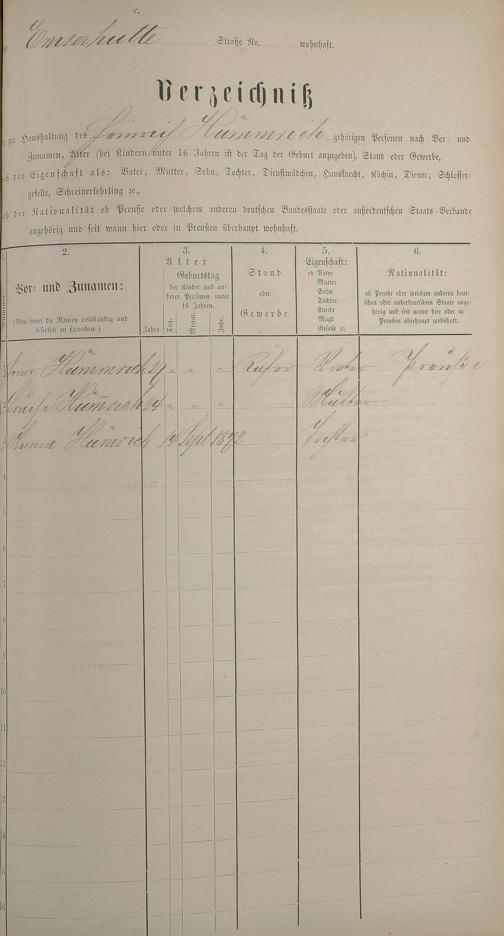 Emserhütte Straße No. wohnhaft.
Verzeichniß
zur Haushaltung des Heinrich Hümmerich gehörigen Personen nach Vor- und
Zunamen, Alter (bei Kindern unter 16 Jahren ist der Tag der Geburt anzugeben), Stand oder Gewerbe,
der Eigenschaft als: Vater, Mutter, Sohn, Tochter, Dienstmädchen, Hausknecht, Köchin, Diener, Schlosser-
geselle, Schreinerlehrling ꝛc.,
der Nationalität ob Preuße oder welchem anderen deutschen Bundesstaate oder außerdeutschen Staats-Verbande
angehörig und seit wann hier oder in Preußen überhaupt wohnhaft.
2. 3. 4. 5. 6.
Vor- und Zunamen:
(Man bittet die Namen vollständig und
leserlich zu schreiben.)
Alter
Geburtstag
der Kinder und an-
derer Personen unter
16 Jahren.
Jahre. Tag. Monat. Jahr.
Stand
oder
Gewerbe.
Eigenschaft:
ob Vater
Mutter
Sohn
Tochter
Knecht
Magd
Geselle ꝛc.
Nationalität:
ob Preuße oder welchem anderen deut-
schen oder außerdeutschen Staate ange-
hörig und seit wann hier oder in
Preußen überhaupt wohnhaft.
Hümmerich 29 " " " Küfer Vater Preuße
Hümmerich 64 " " " Mutter
Hümmerich 14 Sept 1892 Tochter
4
5
6
7
8
9
10
11
12
13
14
15
16